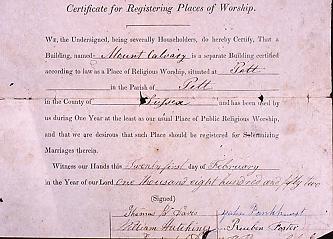 Certificate for Registering Places of Worship.
WE, the Undersigned, being severally Householders, do hereby Certify, That a
Building, named Mount Calvary is a separate Building certified
according to law as a Place of Religious Worship, situated at Pett
in the Parish of Pett
in the County of Sussex and has been used by
us during One Year at the least as our usual Place of Public Religious Worship,
and that we are desirous that such Place should be registered for Solemnizing
Marriages therein.
Witness our Hands this Twenty first day of February
in the Year of our Lord One thousand eight hundred and fifty two
(Signed)
Thomas
William Hutchings Reuben